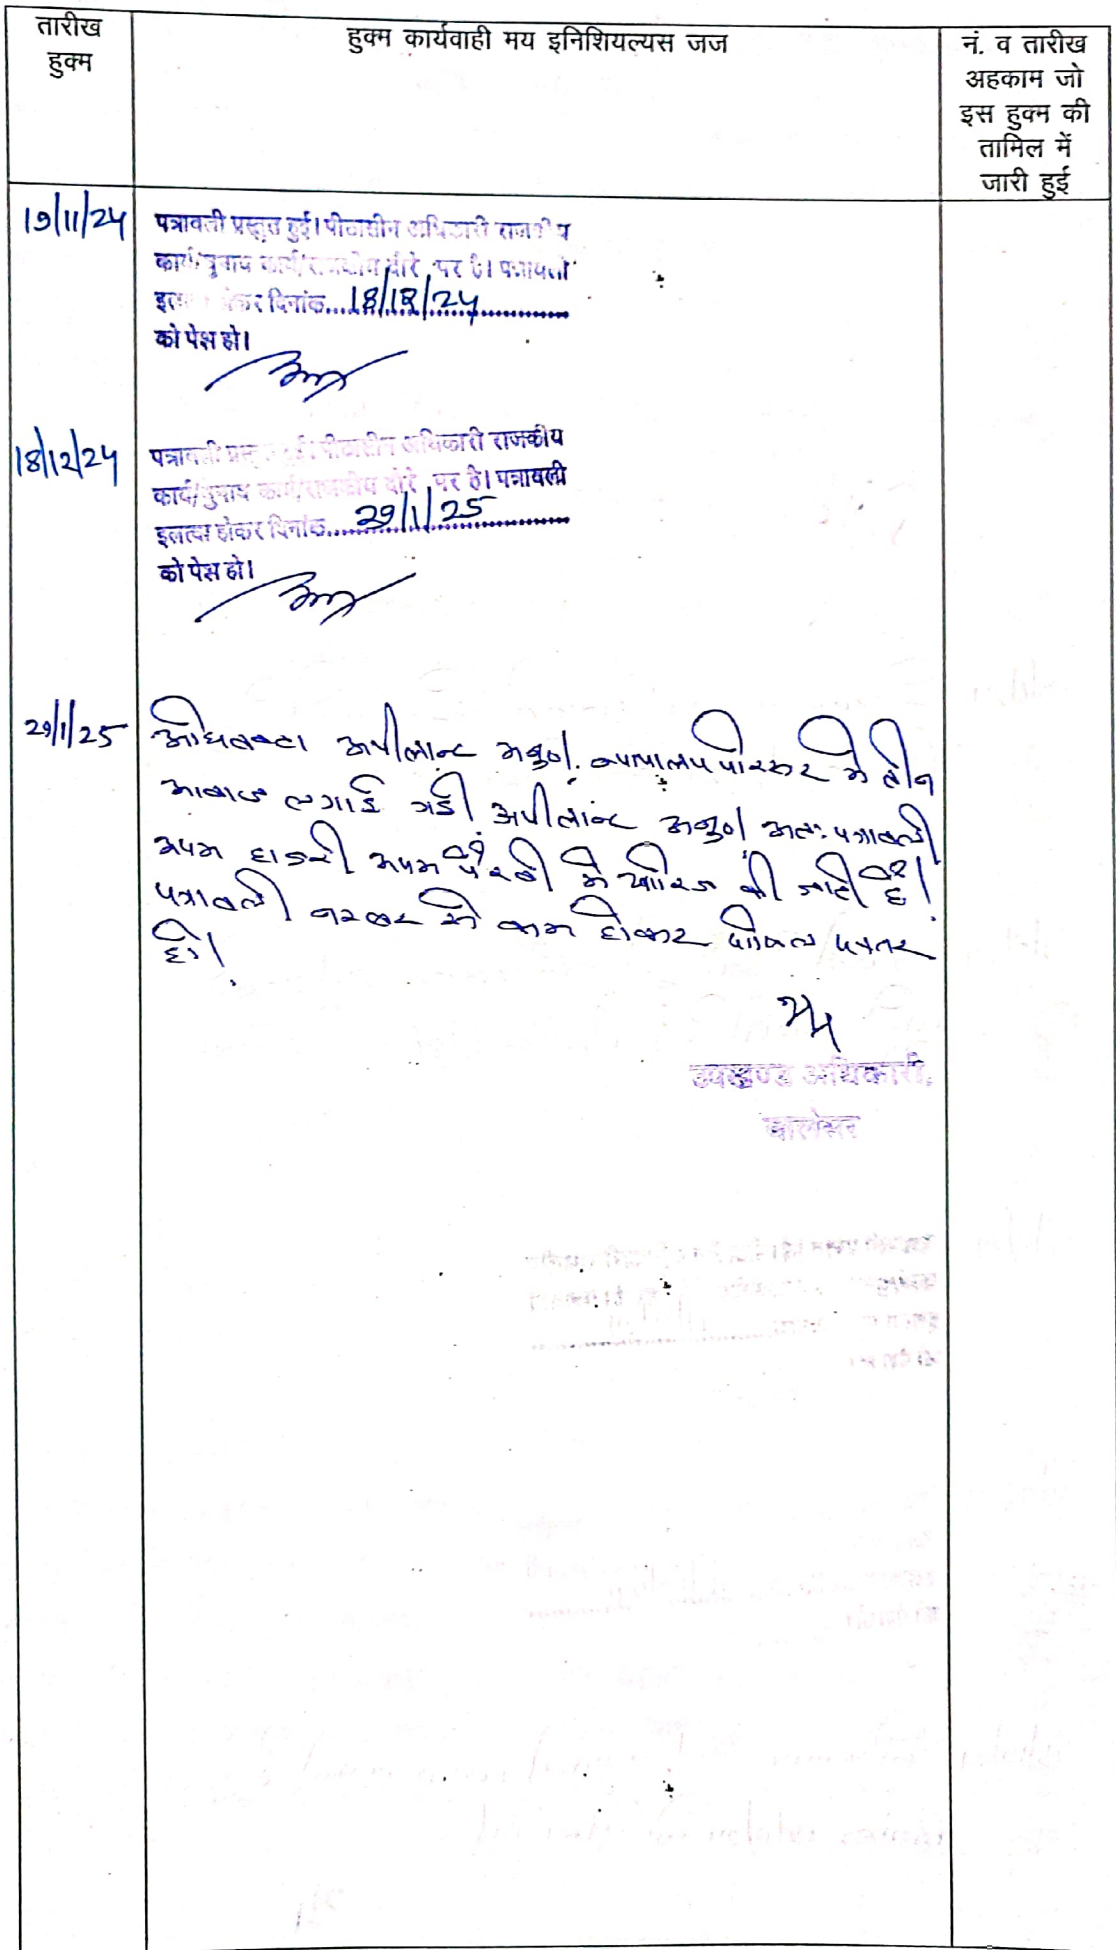 तारीख
हुक्म
हुक्म कार्यवाही मय इनिशियल्यस जज
नं. व तारीख
अहकाम जो
इस हुक्म की
तामिल में
जारी हुई
19/11/24
पत्रावली प्रस्तुत हुई। पीठासीन अधिकारी राजकीय
कार्य/चुनाव कार्य/राजकीय दौरे पर है। पत्रावली
होकर दिनांक....18/12/24
को पेश हो।
18/12/24
पत्रावली पीठासीन अधिकारी राजकीय
कार्य/चुनाव कार्य/राजकीय दौरे पर है। पत्रावली
इलत्वा होकर दिनांक....29/1/25
को पेश हो।
29/1/25
अधिवक्ता अपीलान्ट अनु0। न्यायालय परिसर में तीन
आवाज लगाई गई अपीलांट अनु0। अतः पत्रावली
अदम हाजरी अदम पैरवी में खारिज की जाती है।
पत्रावली नम्बर से कम होकर दाखिल दफ्तर
हो।
उपखण्ड अधिकारी,
बालेसर